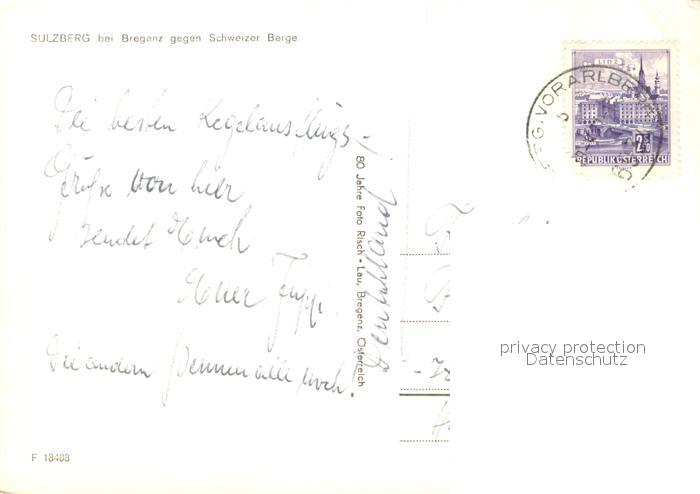 SULZBERG bei Bregenz gegen Schweizer Berge
Die besten Kegelausflugs-
Grüße von hier
sendet Euch
Euer
Die andern pennen alle noch!
80 Jahre Foto Risch - Lau, Bregenz, Osterreich
Deutschland
LINZ
VORARLBERG
REPUBLIK ÖSTERREICH
privacy protection
Datenschutz
F 18408